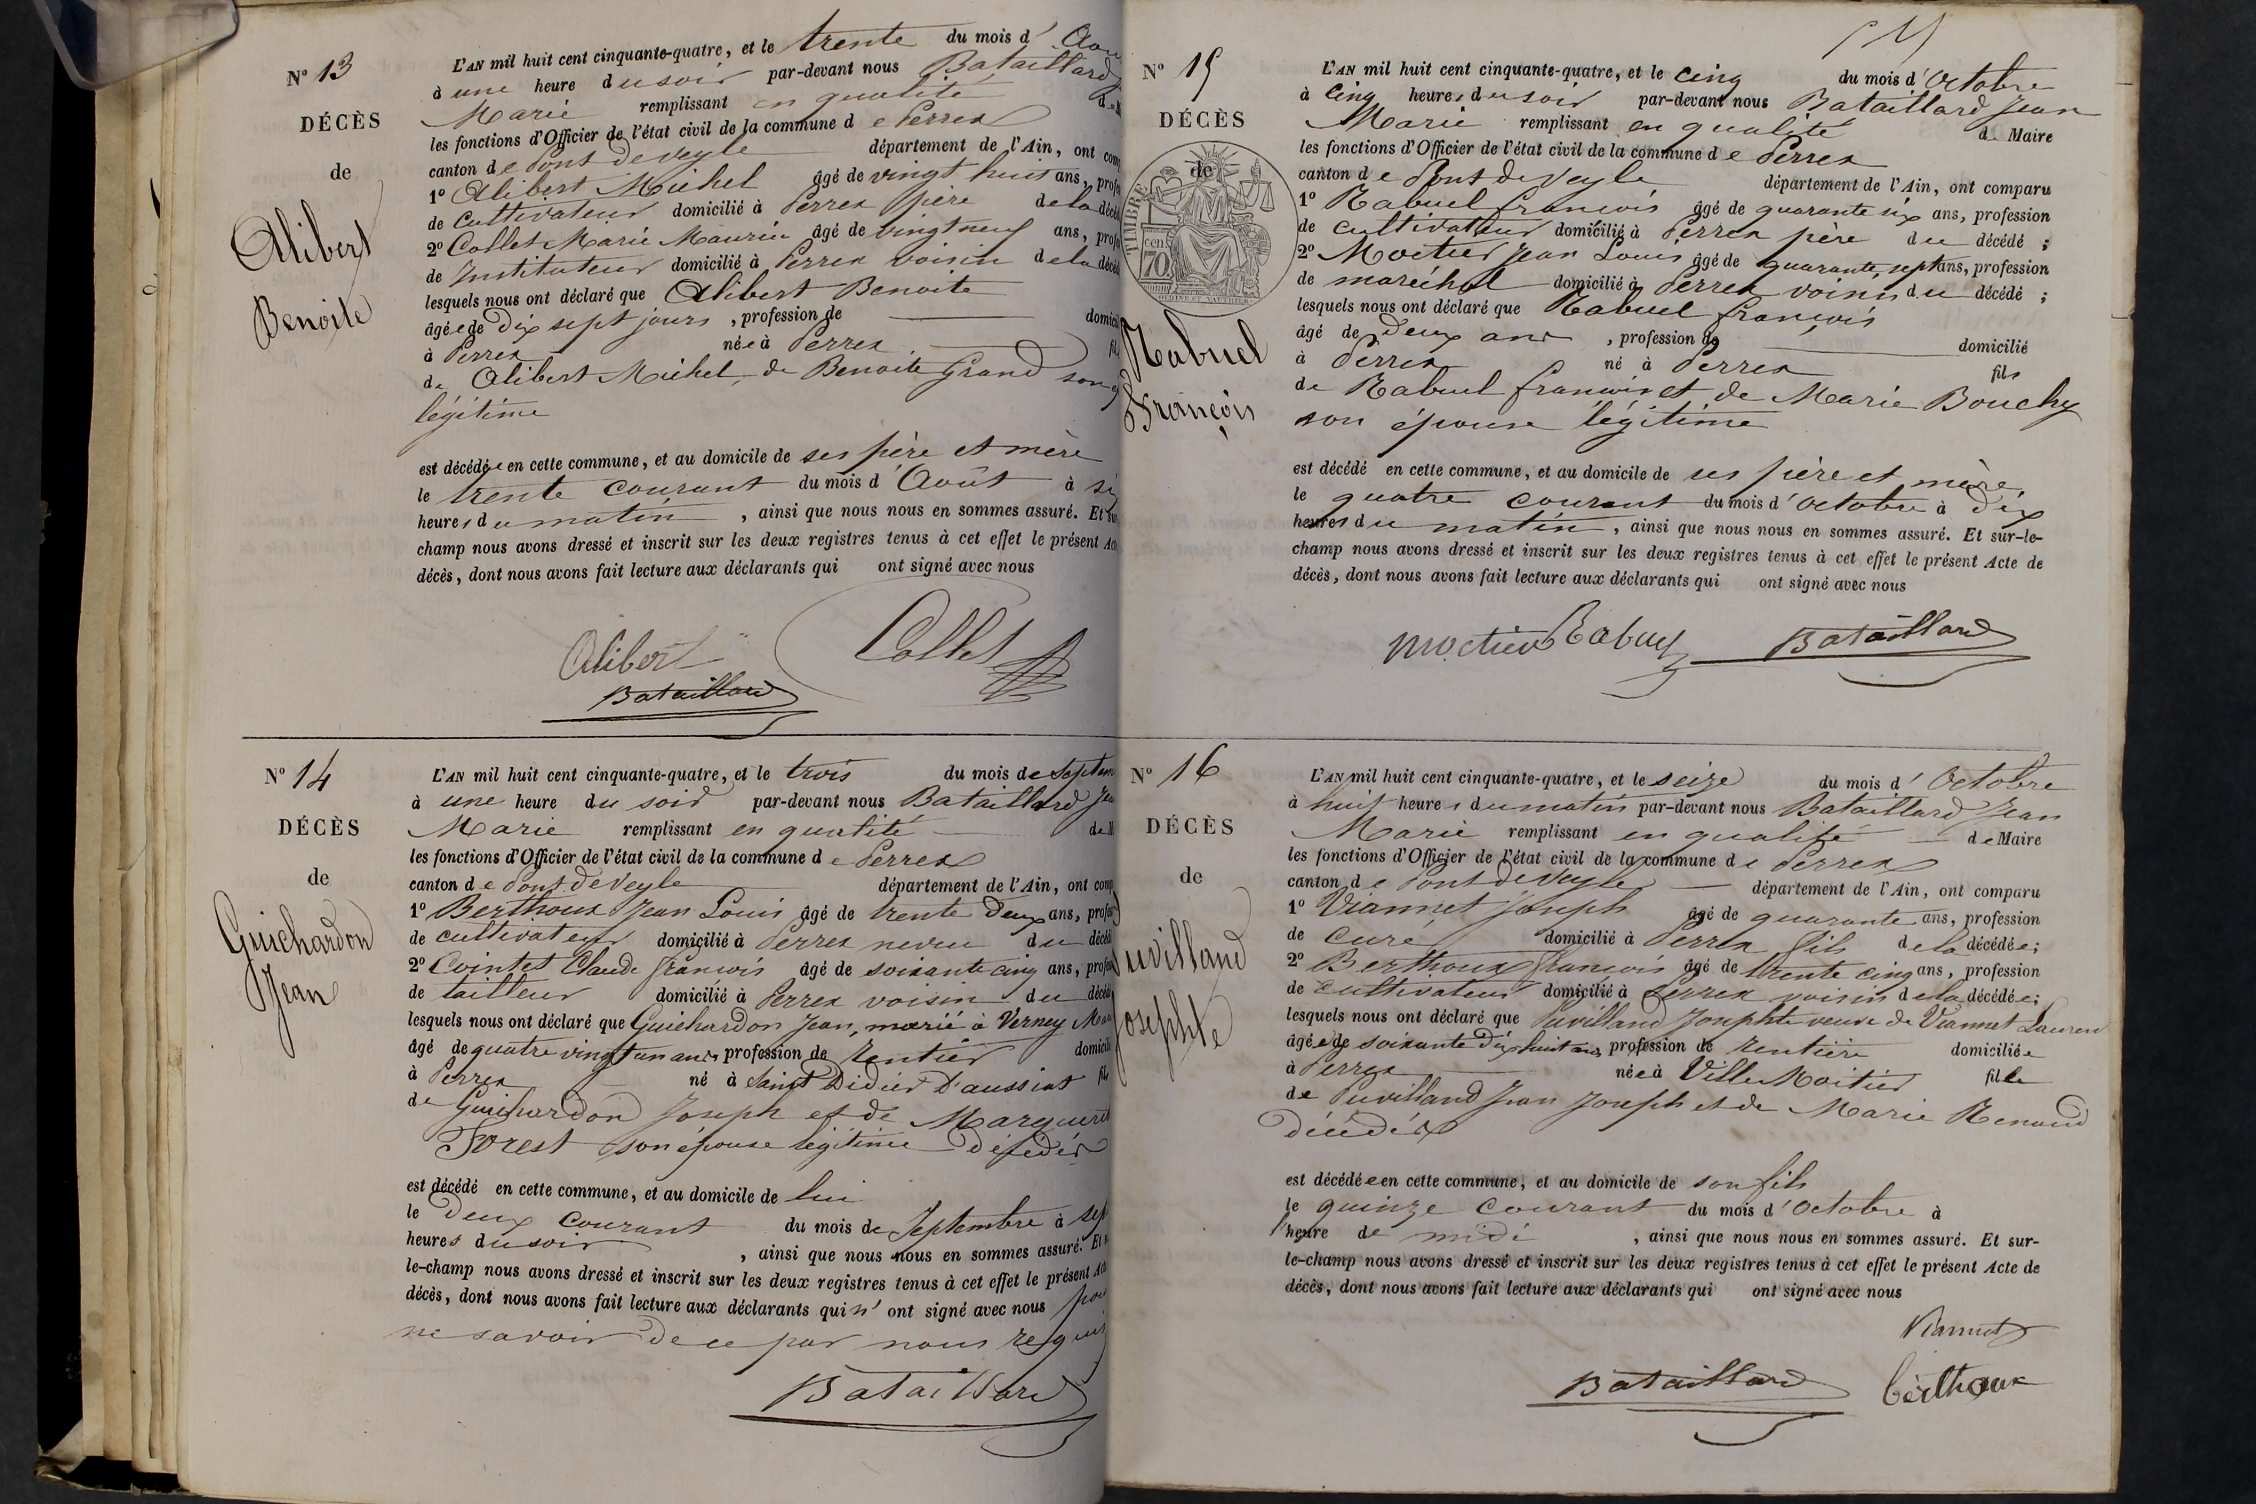 N° 13
DÉCÈS
de
Alibert
Benoite
L'AN mil huit cent cinquante-quatre, et le trente du mois d'Aou
à une heure du soir par-devant nous Bataillard
Marie remplissant en qualité de
les fonctions d'Officier de l'état civil de la commune de Perrex
canton de Pont de Veyle département de l'Ain, ont comp
1° Alibert Michel âgé de vingt huit ans, profes
de cultivateur domicilié à Perrex père de la décéd
2° Collet Marie Maurin âgé de vingt neuf ans, profes
de Instituteur domicilié à Perrex voisin de la décéd
lesquels nous ont déclaré que Alibert Benoite
âgée de dix sept jours, profession de domicil
à Perrex née à Perrex fil
de Alibert Michel, de Benoite Grand son
légitime
est décédée en cette commune, et au domicile de ses père et mère
le trente courant du mois d'Août à six
heures du matin, ainsi que nous nous en sommes assuré. Et sur
champ nous avons dressé et inscrit sur les deux registres tenus à cet effet le présent Acte
décès, dont nous avons fait lecture aux déclarants qui ont signé avec nous
Alibert Collet
Bataillard
N° 14
DÉCÈS
de
Guichardon
Jean
L'AN mil huit cent cinquante-quatre, et le trois du mois de Septem
à une heure du soir par-devant nous Bataillard Jea
Marie remplissant en qualité de M
les fonctions d'Officier de l'état civil de la commune de Perrex
canton de Pont de Veyle département de l'Ain, ont comp
1° Berthoux Jean Louis âgé de trente deux ans, profes
de cultivateur domicilié à Perrex neveu du décéd
2° Cointet Claude François âgé de soixante cinq ans, profes
de tailleur domicilié à Perrex voisin du décéd
lesquels nous ont déclaré que Guichardon Jean, marié à Verney Ma
âgé de quatre vingt un ans profession de rentier domicil
à Perrex né à Saint Didier D'aussiat fils
de Guichardon Joseph et de Marguerit
Forest son épouse légitime décédés
est décédé en cette commune, et au domicile de lui
le deux courant du mois de Septembre à sept
heures du soir, ainsi que nous nous en sommes assuré. Et s
le-champ nous avons dressé et inscrit sur les deux registres tenus à cet effet le présent Acte
décès, dont nous avons fait lecture aux déclarants qui n'ont signé avec nous pour
ne savoir de ce par nous requis
Bataillard
N° 15
DÉCÈS
de
TIMBRE
cen
70
Rabuel
François
L'AN mil huit cent cinquante-quatre, et le cinq du mois d'Octobre
à cinq heures du soir par-devant nous Bataillard Jean
Marie remplissant en qualité de Maire
les fonctions d'Officier de l'état civil de la commune de Perrex
canton de Pont de Veyle département de l'Ain, ont comparu
1° Rabuel François âgé de quarante six ans, profession
de cultivateur domicilié à Perrex père du décédé ;
2° Moctier Jean Louis âgé de quarante sept ans, profession
de maréchal domicilié à Perrex voisin du décédé ;
lesquels nous ont déclaré que Rabuel François
âgé de deux ans, profession de domicilié
à Perrex né à Perrex fils
de Rabuel François et de Marie Bouchy
son épouse légitime
est décédé en cette commune, et au domicile de ses père et mère
le quatre courant du mois d'Octobre à dix
heures du matin, ainsi que nous nous en sommes assuré. Et sur-le-
champ nous avons dressé et inscrit sur les deux registres tenus à cet effet le présent Acte de
décès, dont nous avons fait lecture aux déclarants qui ont signé avec nous
Moctier Rabuel Bataillard
N° 16
DÉCÈS
de
Puvilland
Josephte
L'AN mil huit cent cinquante-quatre, et le seize du mois d'Octobre
à huit heures du matin par-devant nous Bataillard Jean
Marie remplissant en qualité de Maire
les fonctions d'Officier de l'état civil de la commune de Perrex
canton de Pont de Veyle département de l'Ain, ont comparu
1° Viannet Joseph âgé de quarante ans, profession
de curé domicilié à Perrex fils de la décédée ;
2° Berthoux François âgé de trente cinq ans, profession
de cultivateur domicilié à Perrex voisin de la décédée ;
lesquels nous ont déclaré que Puvilland Josephte veuve de Viannet Laurent
âgée de soixante dix huit ans profession de rentière domiciliée
à Perrex née à Ville Moitier fille
de Puvilland Jean Joseph et de Marie Renaud
décédés
est décédée en cette commune, et au domicile de son fils
le quinze courant du mois d'Octobre à
l'heure de midi, ainsi que nous nous en sommes assuré. Et sur-
le-champ nous avons dressé et inscrit sur les deux registres tenus à cet effet le présent Acte de
décès, dont nous avons fait lecture aux déclarants qui ont signé avec nous
Viannet
Bataillard Berthoux